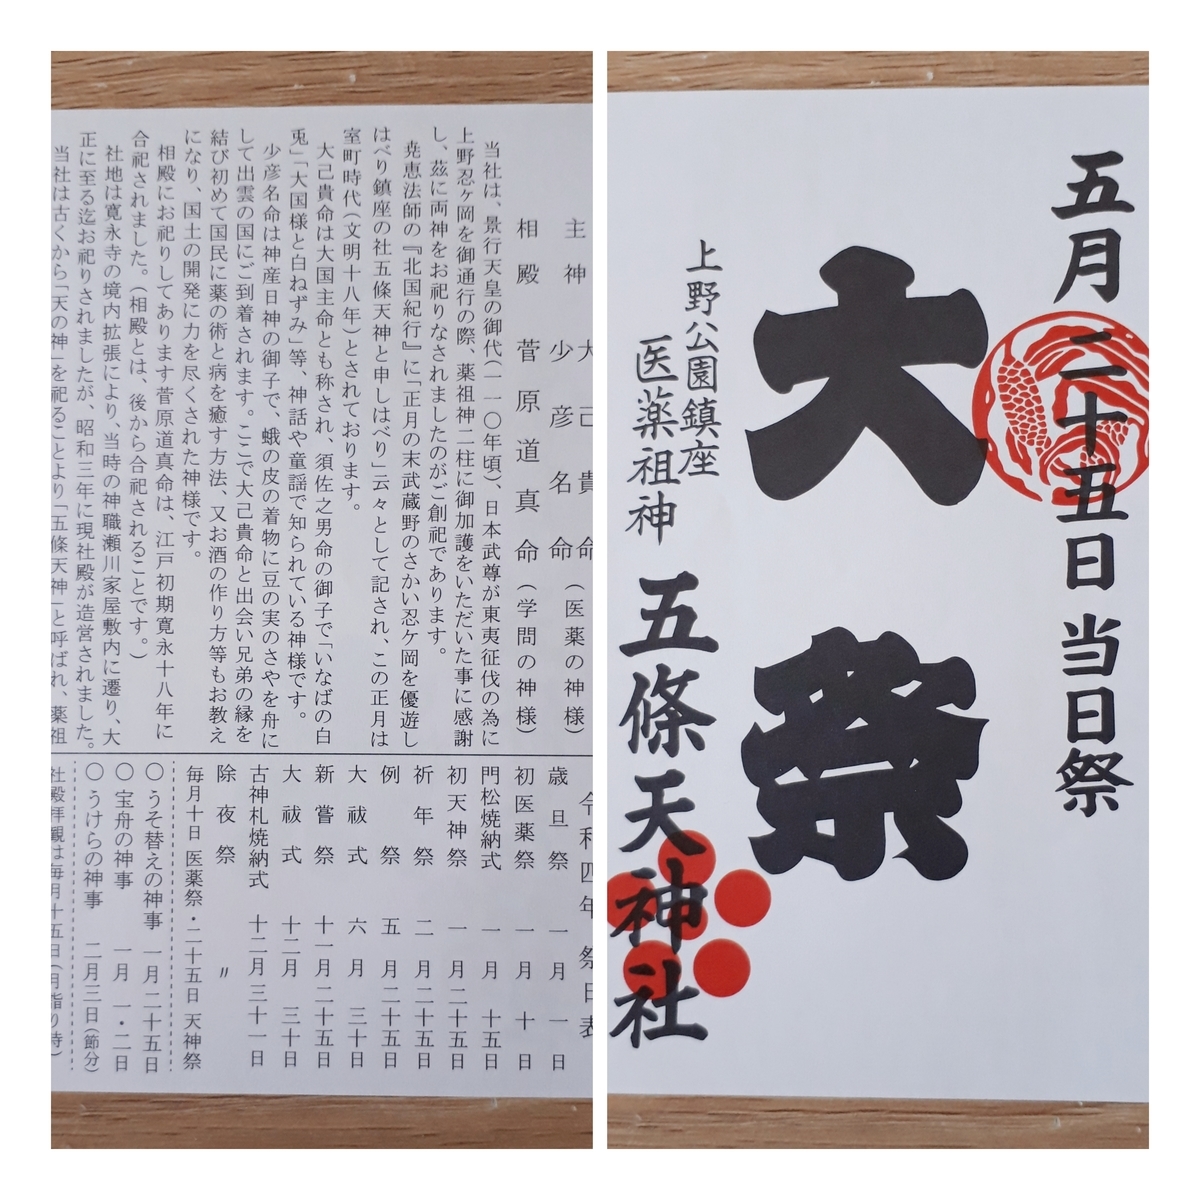 主神 大己貴命
少彦名命（医薬の神様）
相殿 菅原道真命（学問の神様）
当社は、景行天皇の御代（一一〇年頃）、日本武尊が東夷征伐の為に
上野忍ケ岡を御通行の際、薬祖神二柱に御加護をいただいた事に感謝
し、茲に両神をお祀りなされましたのがご創祀であります。
尭恵法師の『北国紀行』に「正月の末武蔵野のさかい忍ケ岡を優遊し
はべり鎮座の社五條天神と申しはべり」云々として記され、この正月は
室町時代（文明十八年）とされております。
大己貴命は大国主命とも称され、須佐之男命の御子で「いなばの白
兎」「大国様と白ねずみ」等、神話や童謡で知られている神様です。
少彦名命は神産日神の御子で、蛾の皮の着物に豆の実のさやを舟に
して出雲の国にご到着されます。ここで大己貴命と出会い兄弟の縁を
結び初めて国民に薬の術と病を癒す方法、又お酒の作り方等もお教え
になり、国土の開発に力を尽くされた神様です。
相殿にお祀りしてあります菅原道真命は、江戸初期寛永十八年に
合祀されました。（相殿とは、後から合祀されることです。）
社地は寛永寺の境内拡張により、当時の神職瀬川家屋敷内に遷り、大
正に至る迄お祀りされましたが、昭和三年に現社殿が造営されました。
当社は古くから「天の神」を祀ることより「五條天神」と呼ばれ、薬祖
令和四年 祭日表
歳旦祭 一月一日
初医薬祭 一月十日
門松焼納式 一月十五日
初天神祭 一月二十五日
祈年祭 二月二十五日
例祭 五月二十五日
大祓式 六月三十日
新嘗祭 十一月二十五日
大祓式 十二月三十日
古神札焼納式 十二月三十一日
除夜祭 〃
毎月十日 医薬祭・二十五日 天神祭
○うそ替えの神事 一月二十五日
○宝舟の神事 一月一・二日
○うけらの神事 二月三日（節分）
社殿拝観は毎月十五日（月詣り時）
五月二十五日 当日祭
大祭
上野公園鎮座
医薬祖神 五條天神社